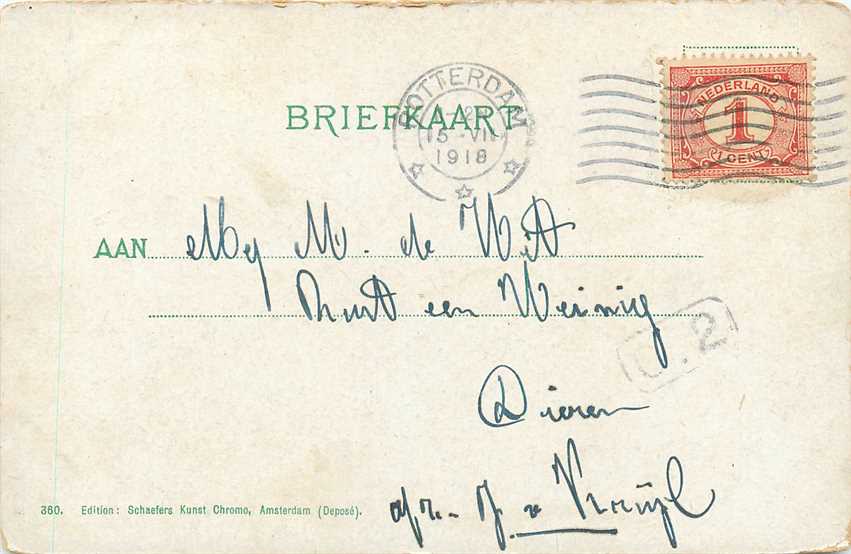 BRIEFKAART
ROTTERDAM
15 VII
1918
NEDERLAND
1
1 CENT
AAN Mej M. de Wit
Rust een Weinig
.2
Dieren
afz. J. v
360. Edition: Schaefers Kunst Chromo, Amsterdam (Deposé).